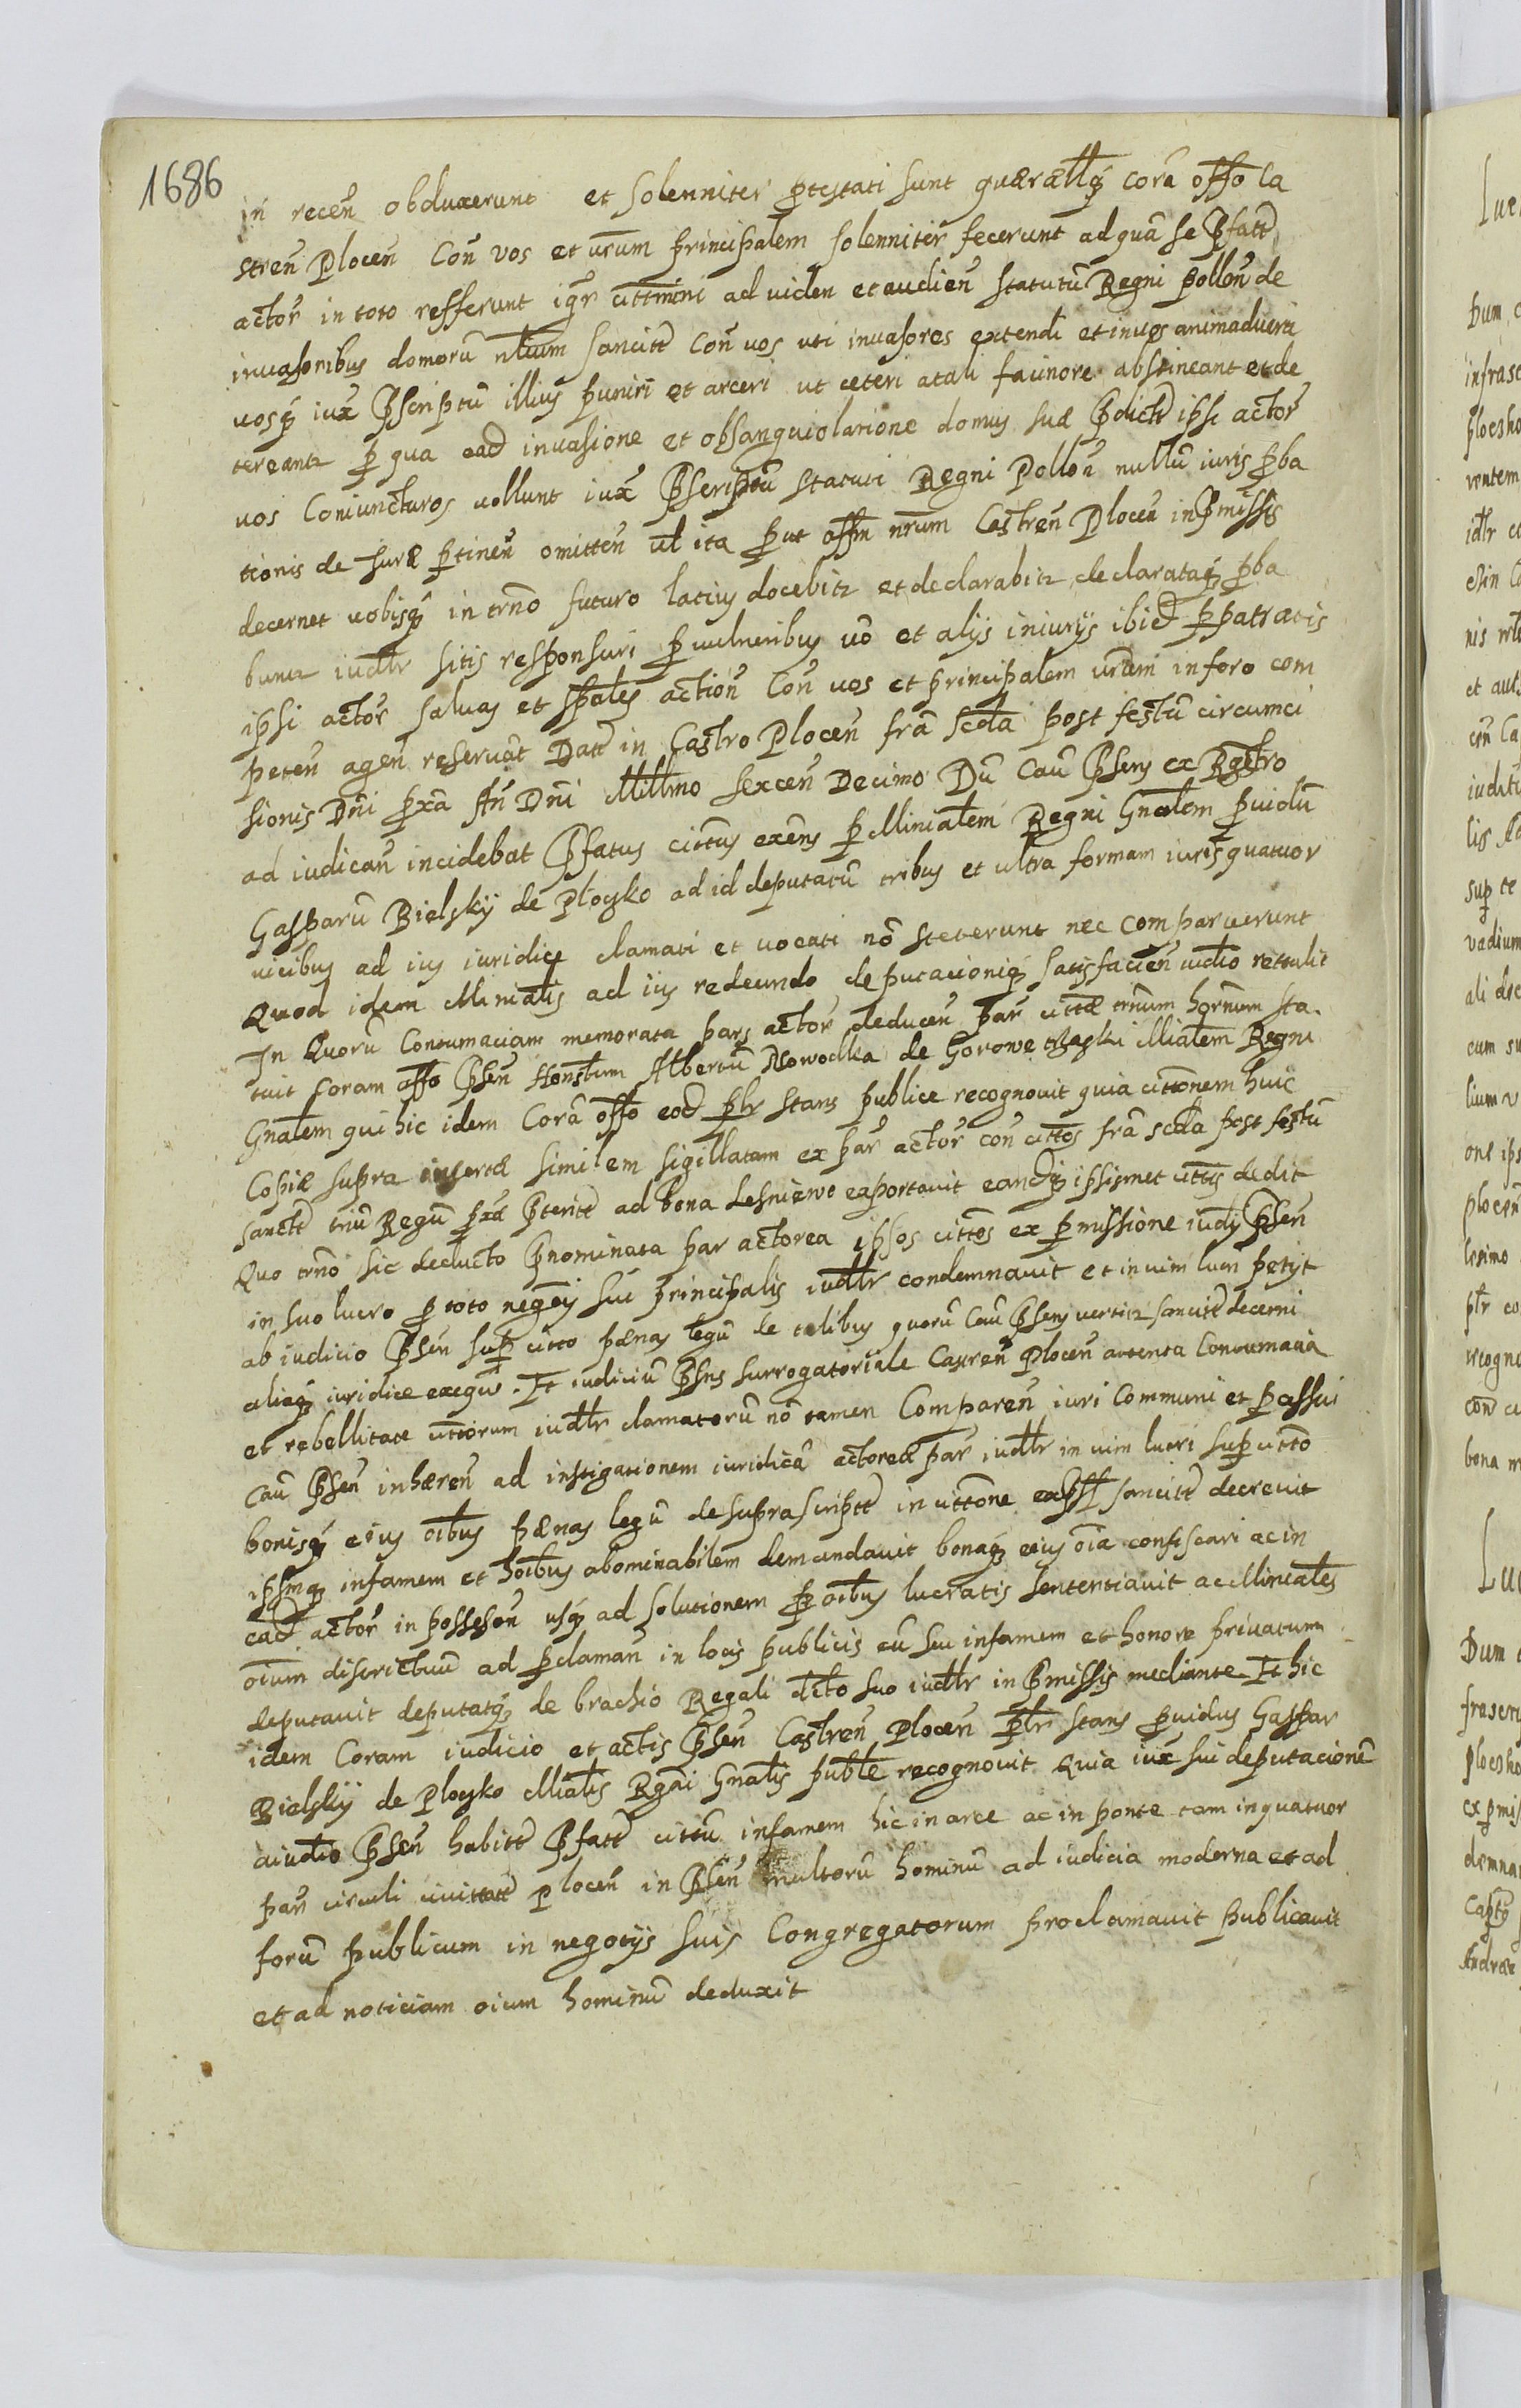 1686
in receñ obduxerunt et solenniter ptestati sunt quærællq3 corã offo Ca
streñ Plocen̄ Coñ vos et vrũm principalem solenniter fecerunt ad quã se Pfatt
actor̃ in toto refferunt igr̃ cittmini ad viden et audien̄ statutũ Regni Pollon̄ de
invasoribus domorũ nlium sancitt Con̄ vos uti invasores extendi et in vos animaduerti
vosq3 iux̃ Pscriptũ illius puniri et arceri ut ceteri a tali facinore abstineant et de
tereantr p qua ead̃ invasione et obsanguiolatione domus suæ Pdictt ipsi actor̃
vos Coniuncturos vollunt iux̃ Pscriptũ statuti Regni Pollon̄ nullũ iuris pba
tionis de iure ptinen̄ omitten̄ vl ita put offm nrũm Castren̄ Plocen̄ in Pmissis
decernet vobisq3 in trño futuro latius docebitr et declarabitr declarataq3 pba
buntr iudtr sitis responsuri p vulneribus vō et alijs iniurijs ibid̃ ppatratis
ipsi actor̃ salvas et spales action̄ Con̄ vos et principalem vrũm in foro com
peten̄ agen̄ reservãt Datt in Castro Plocen̄ frã scda post festũ circumci
sionis Dñi pxã Añ Dñi Millmo sexcen̄ Decimo Dũ Caũ Psens ex Rgestro
ad iudican̄ incidebat Pfatus citttus exens p Minialem Regni Gnãlem pvidũ
Gasparũ Bielskij de Ploysko ad id deputatũ tribus et ultra formam iuris quatuor
vicibus ad ius iuridice clamati et vocati nō steterunt nec comparuerunt
Quod idem Minialis ad ius redeundo deputacioniq3 satisfacien̄ iudio rettulit
In Quorũ Contumaciam memorata pars actor̃ deducen̄ par̃ cittæ trñum hornum sta
tuit coram offo Psen̄ Honstum Albertũ Nowodka de Gorowo Mialem Regni
Gnãlem qui hic idem Corã offo eod̃ pltr stans publice recognovit quia cittonem huic
Copiæ supra insertæ similem sigillatam ex par̃ actor̃ con̄ cittos frã scda post festũ
sanctt triũ Regũ pxã Pteritt ad bona Lesniewo exportavit eandq3 ipsismet cittis dedit
Quo trño sic deducto Pnominata par actorea ipsos cittos ex pmissione iudij Psen̄
in suo lucro p toto negcij sui principalis iudtr condemnavit et in vim lucri petijt
ab iudicio Psen̄ sup citto pænas legũ de talibus quorũ Caũ Psens vertitr sancitt decerni
aliaq3 iuridice exequi. Et iudiciũ Psens surrogatoriale Castren̄ Plocen̄ attenta Contumacia
et rebellitate cittorum iudtr clamatorũ nō tamen Comparen̄ iuri Communi et pcessui
caũ Psen̄ inhæren̄ ad instigationem iuridicã actoreæ par̃ iudtr in vim lucri sup citto
bonisq3 eius oibus pænas legũ de suprascriptt in cittone sancitt decrevit
ipsmq3 infamem et hōibus abominabilem demandavit bonaq3 eius oia confiscari ac in
ead̃ actor̃ in possession̄ usq3 ad solutionem p oibus lucratis sententiavit ac Miniales
oium districtuũ ad pclaman̄ in locis publicis eũ seu infamem et honore privatum
deputavit deputatq3 de brachio Regali dcto suo iudtr in Pmissis mediante Et hic
idem Coram iudicio et actis Psen̄ Castren̄ Plocen̄ pltr stans pvidus Gaspar
Bielskij de Ploysko Mialis Rgni Gnãlis puble recognovit Quia iux̃ sui deputacionẽ
a iudio Psen̄ habitt Pfatt cittũ infamem hic in arce ac in ponte tam in quatuor
par̃ circuli civittatt Plocen̄ in Psen̄ multorũ hominũ ad iudicia moderna et ad
forũ publicum in negotijs suis Congregatorum proclamavit publicavit
et ad noticiam oium hominũ deduxit